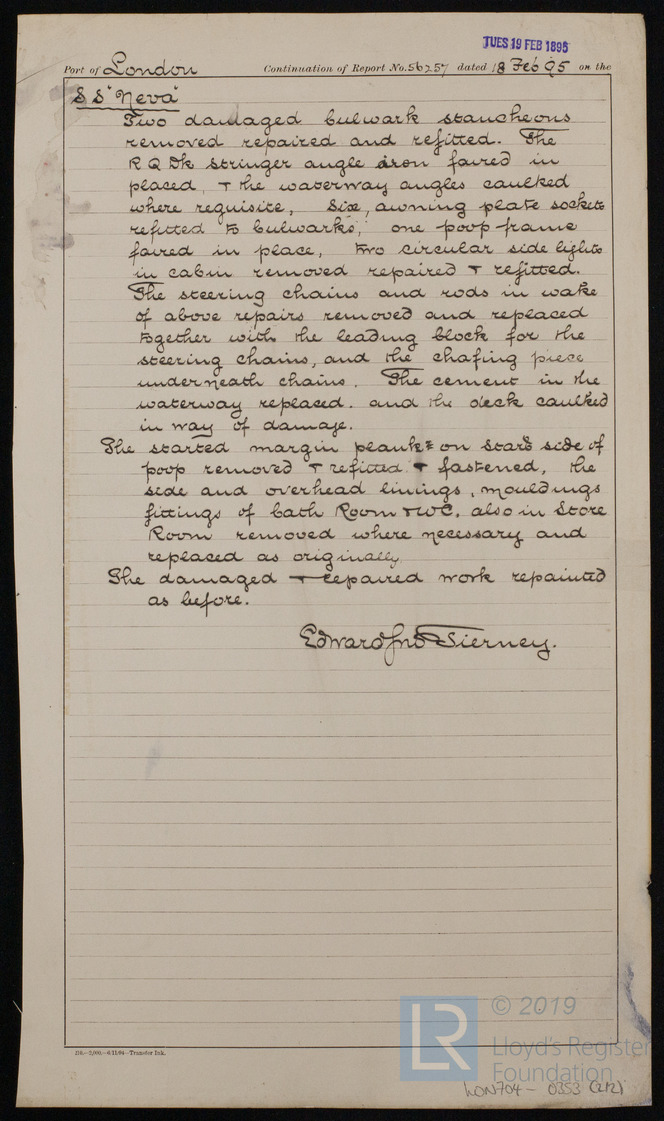 TUES 19 FEB 1895
Port of London Continuation of Report No. 56257 dated 18 Feb 95 on the
SS "Neva"
Two damaged bulwark stancheons
removed repaired and refitted. The
R Q Dk stringer angle iron faired in
placed, + the waterway angles caulked
where requisite, Six, awning plate sockets
refitted to bulwarks, one poop frame
faired in place, two circular side lights
in cabin removed repaired + refitted.
The steering chains and rods in wake
of above repairs removed and replaced
together with the leading block for the
steering chains, and the chafing piece
underneath chains. The cement in the
waterway replaced. and the deck caulked
in way of damage.
The started margin plank on Starb side of
poop removed + refitted + fastened, the
side and overhead linings, mouldings
fittings of bath Room + WC. also in Store
Room removed where necessary and
replaced as originally
The damaged + repaired work repainted
as before.
Edward Jno Tierney.
116.—2,000.—6/11/94—Transfer Ink.
LR © 2019
Lloyd's Register
Foundation
LON704 - 0353 (2/2)